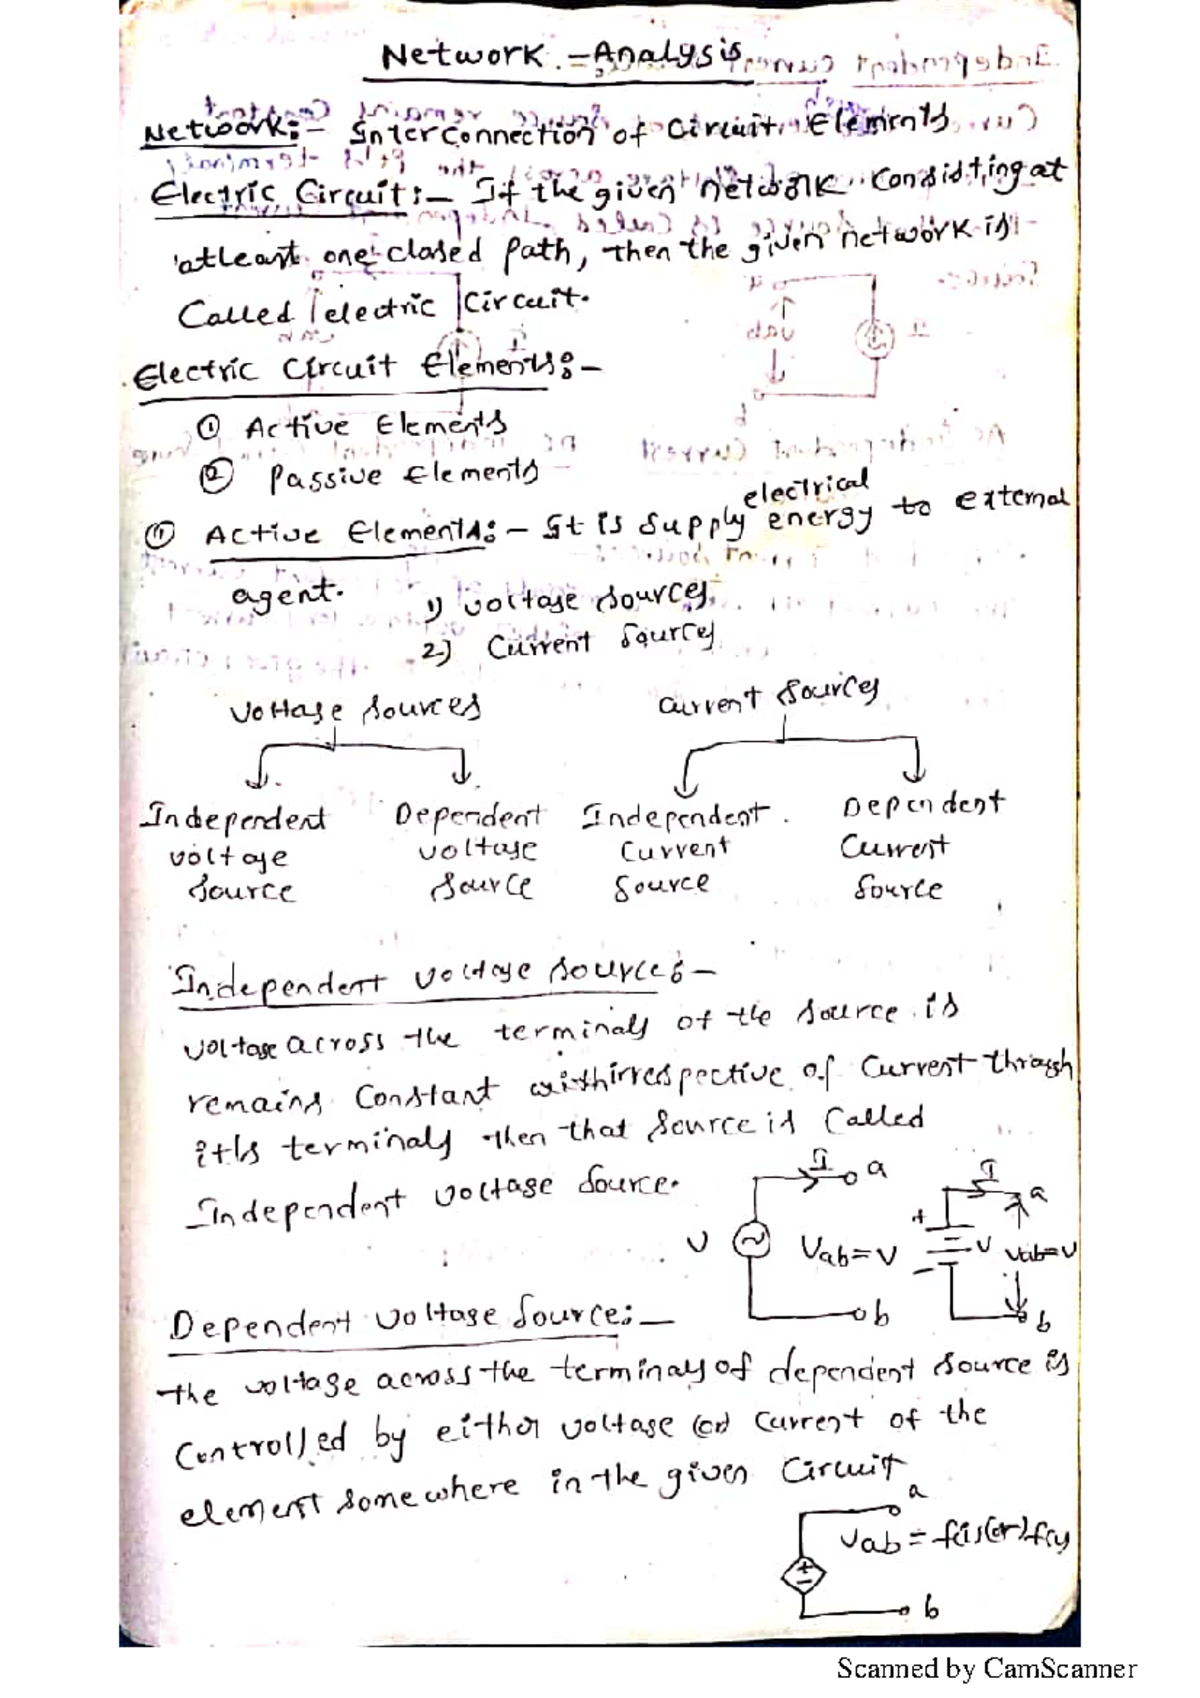 Network - Analysis
Network:- Interconnection of Circuit Elements
Electric Circuit:- If the given network Consisting at
atleast one closed path, then the given network is
Called electric Circuit.
Electric Circuit Elements:-
① Active Elements
② Passive Elements
① Active Elements:- It is supply electrical energy to external
agent.
1) voltage sources
2) Current sources
Voltage sources
Current sources
Independent Dependent Independent. Dependent
voltage voltage Current Current
source source source source
Independent voltage source:-
voltage across the terminals of the source is
remains Constant with irrespective of Current through
it's terminals then that source is Called
Independent voltage source.
I a
V Vab=V
b
I a
+ - V Vab=V
b
Dependent voltage source:-
The voltage across the terminals of dependent source is
Controlled by either voltage (or) Current of the
element somewhere in the given Circuit
a
+ -
Vab =
b
Scanned by CamScanner